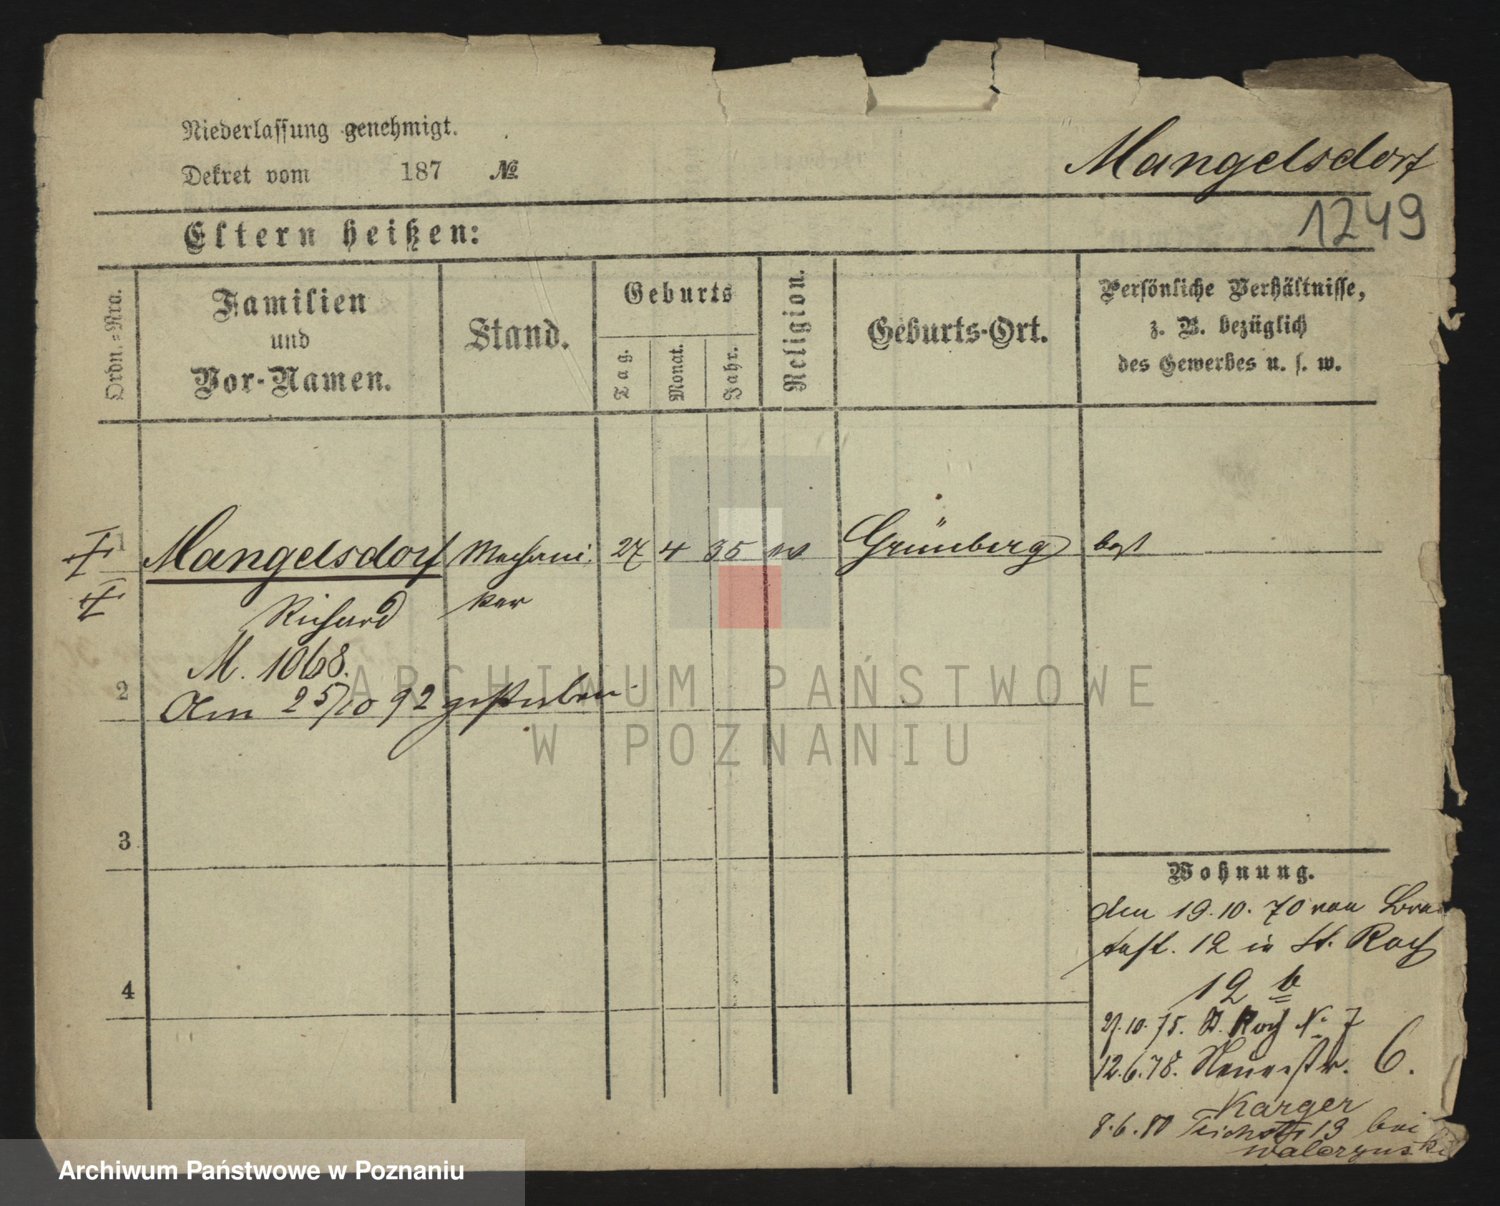 Niederlassung genehmigt.
Dekret vom 187 №
Mangelsdorf
1249
Eltern heißen:
Ordn.-Nro.
Familien
und
Vor-Namen.
Stand.
Geburts
Tag.
Monat.
Jahr.
Religion.
Geburts-Ort.
Persönliche Verhältnisse,
z. B. bezüglich
des Gewerbes u. s. w.
1 Mangelsdorf Mechani 27 4 35 Grünberg
Richard ker
M. 1068.
2 Am 25/10 92 gestorben
3
4
Wohnung.
Am 19.10.70 von
12 in St. Roch
12 b
27.10.75. St. Roch No 7
12.6.78. Neuestr. 6.
Karger
8.6.80 Teichstr 13 bei
Walczynski
ARCHIWUM PAŃSTWOWE
W POZNANIU
Archiwum Państwowe w Poznaniu